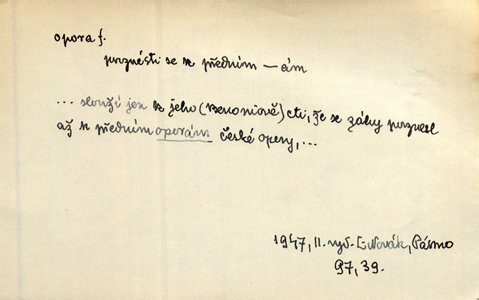 opora f.
povznésti se k předním — ám
... slouží jen k jeho (Benoniově) cti, že se záhy povznesl
až k předním oporám české opery, ...
1947, II. vyd. L. Novák, Pásmo
97, 39.